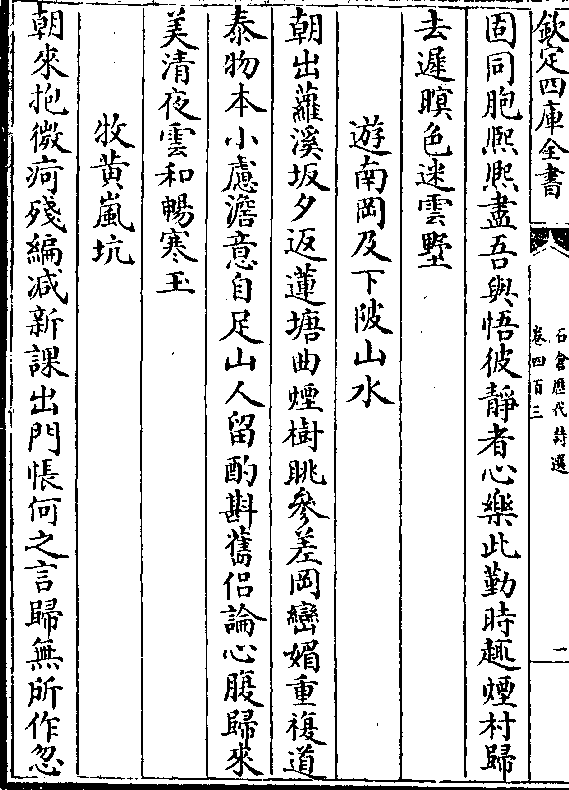 欽定四庫全書
石倉歷代詩選
卷四百三
二
固同胞熈熈盡吾與悟彼靜者心樂此勤時趣煙村歸
去遲暝色迷雲墅
遊南岡及下陂山水
朝出蘿溪坂夕返蓮塘曲煙樹眺參差岡巒媚重複道
泰物本小慮澹意自足山人留酌斟舊侣論心腹歸來
美清夜雲和暢寒玉
牧黄嵐坑
朝來抱微疴殘編減新課出門悵何之言歸無所作忽